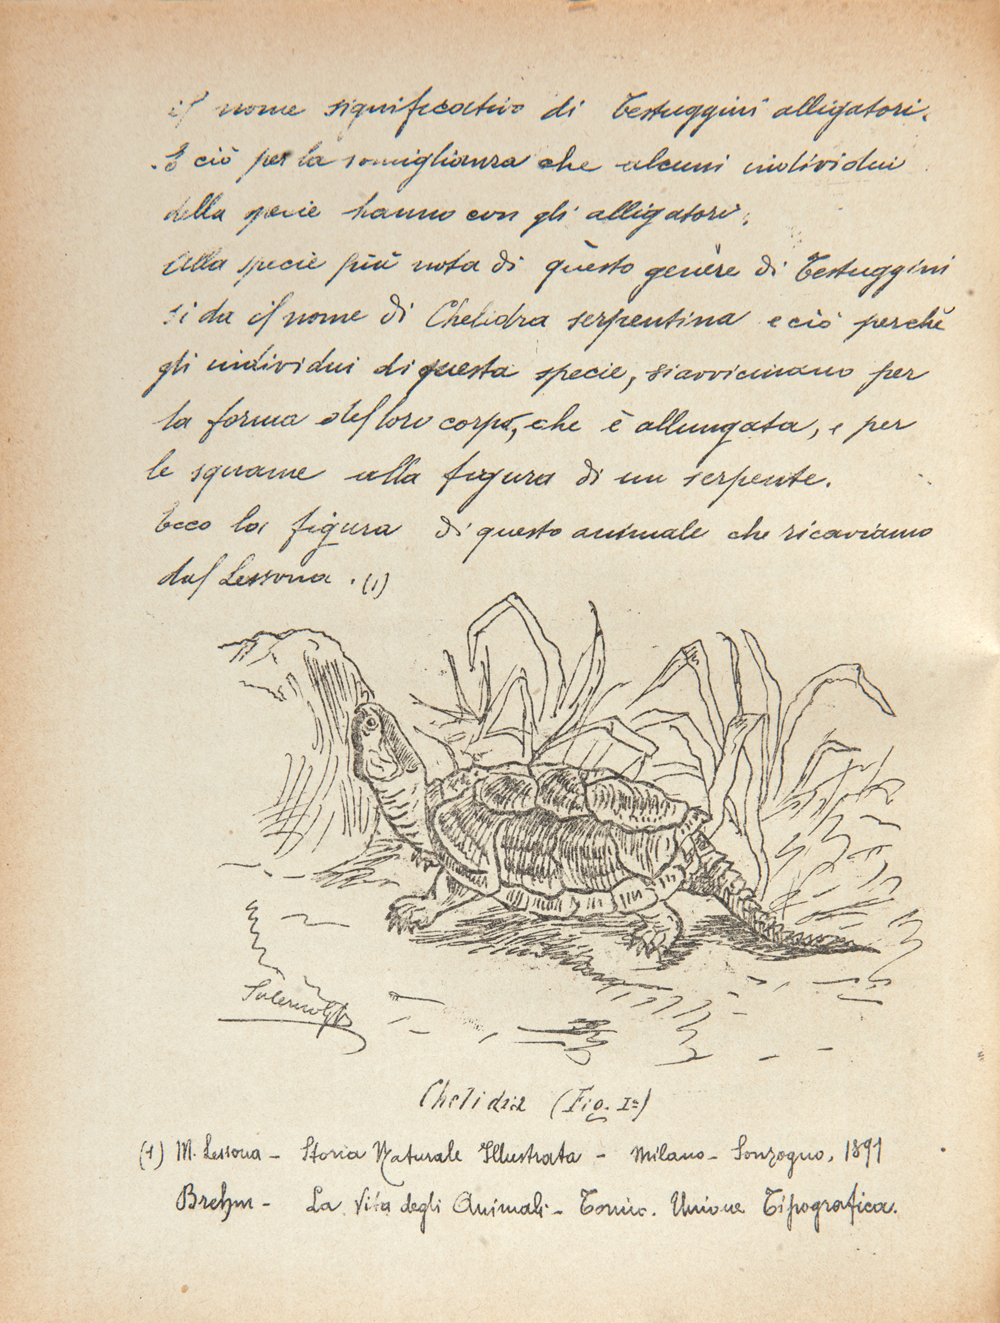 il nome significativo di Testuggini alligatori.
E ciò per la somiglianza che alcuni individui
della specie hanno con gli alligatori.
Alla specie più nota di questo genere di Testuggini
si da il nome di Chelidra serpentina e ciò perchè
gli individui di questa specie, si avvicinano per
la forma del loro corpo, che è allungata, e per
le squame alla figura di un serpente.
Ecco la figura di questo animale che ricaviamo
dal Lessona. (1)
Chelidra (Fig. Iª)
(1) M. Lessona - Storia Naturale Illustrata - Milano - Sonzogno, 1891
Brehm - La Vita degli Animali - Torino. Unione Tipografica.